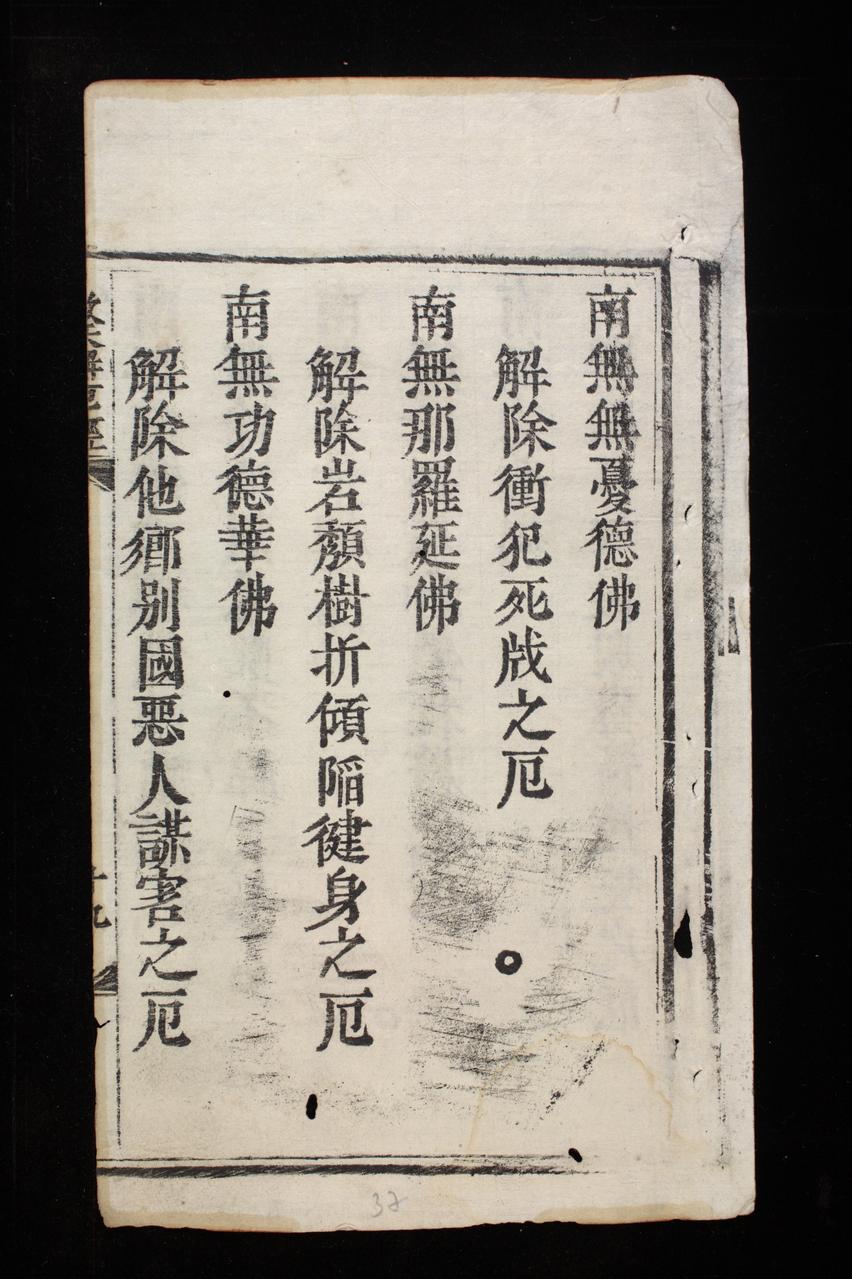 南無無憂德佛
解除衝犯死戌之厄
南無那羅延佛
解除岩頽樹折傾陷徤身之厄
南無功德華佛
解除他鄉别國惡人謀害之厄
十九
37